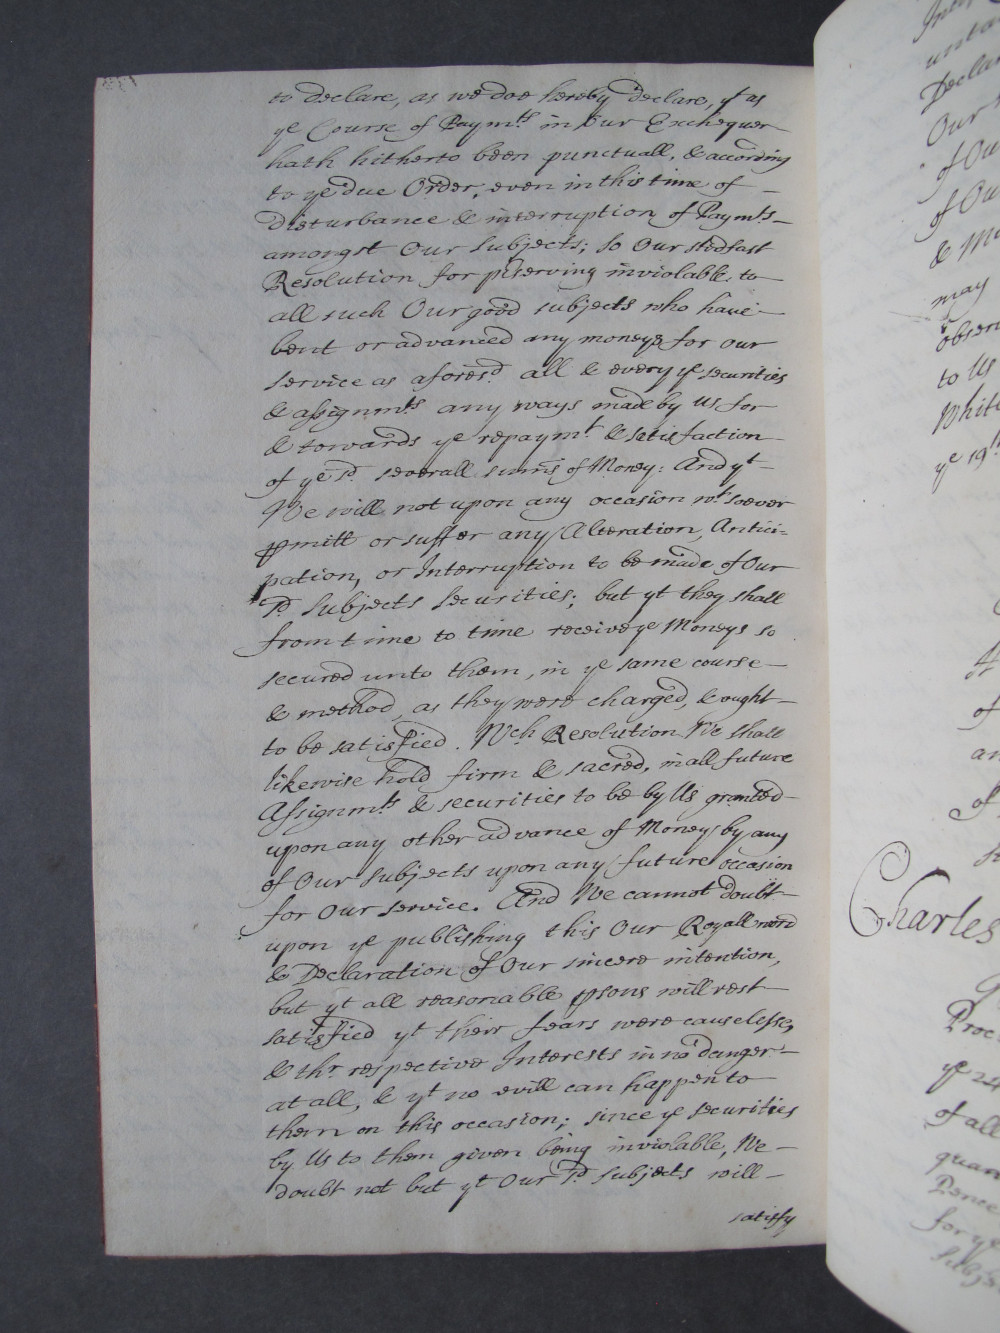 to Declare, as we doe hereby declare, yt as
ye Course of Paymts in Our Exchequer
hath hitherto been punctuall, & according
to ye due Order, even in this time of
Disturbance & interruption of Paymts
amongst Our Subjects; So Our stedfast
Resolution for pserving inviolable to
all such Our good subjects who have
lent or advanced any moneys for our
Service as aforesd. all & every ye securities
& assignmts any ways made by us for
& towards ye repaymt & satisfaction
of ye sd. severall summs of Money: And yt
We will not upon any occasion wtsoever
pmitt or suffer any Alteration, Antici=
pation, or Interruption to be made of Our
sd. Subjects Securities; but yt they shall
from time to time receive ye Moneys so
secured unto them, in ye same course
& method, as they were charged, & ought
to be satisfied. Wch Resolution We shall
likewise hold firm & sacred, in all future
Assignmts & securities to be by Us granted
upon any other advance of Moneys by any
of Our Subjects upon any future occasion
for Our service. And We cannot doubt
upon ye publishing this Our Royall word
& Declaration of Our sincere intention,
but yt all reasonable psons will rest
satisfied yt their fears were causelesse,
& thr. respective Interests in no danger
at all, & yt no evill can happen to
them on this occasion; since ye securities
by Us to them given being inviolable, We
doubt not but yt Our sd. Subjects will
satisfy
Declar
Our
of Our
of Ou
& Mo
may
obser
to Us
Whit
ye 19th
of
an
of
Charles
Proc
ye 24
of all
quan
Pence
for ye
Subj